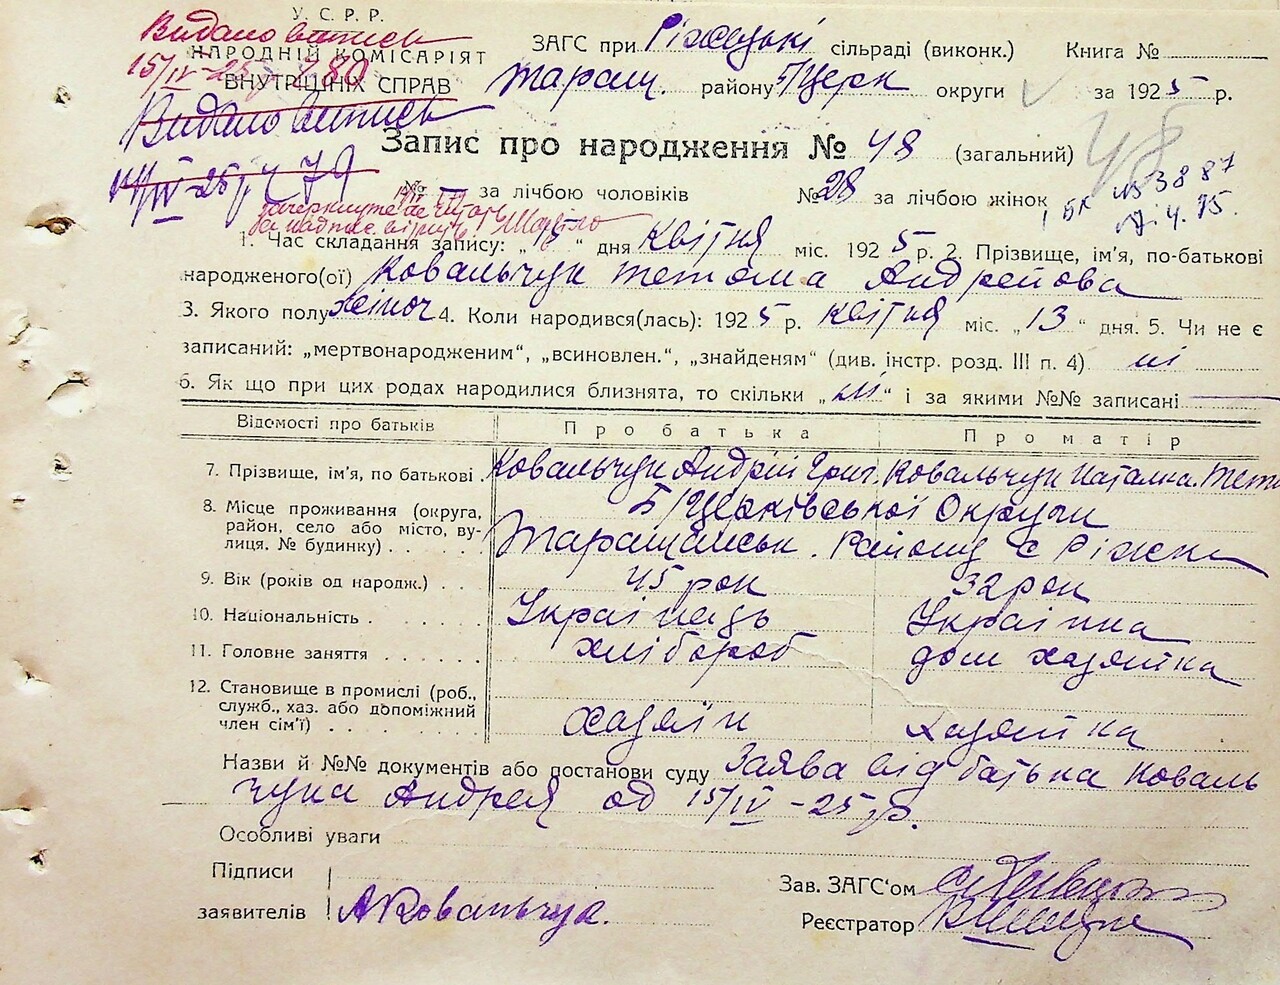 У. С. Р. Р.
Видано випись
НАРОДНІЙ КОМІСАРІЯТ
15/IV-25р. 280
ВНУТРІШНІХ СПРАВ
Видано випись
ЗАГС при Ріжецькі сільраді (виконк.) Книга №
Таращ. району Б/Церк округи за 1925 р.
Запис про народження № 48 (загальний) 48
IV-25р. 79
№ — за лічбою чоловіків № 28 за лічбою жінок
№ 3887
4.75.
зачеркнуте
1. Час складання запису: „15“ дня Квітня міс. 1925 р. 2. Прізвище, ім'я, по-батькові
народженого(ої) Ковальчук Тетяна Андреєва
3. Якого полу жіноч 4. Коли народився(лась): 1925 р. квітня міс. „13“ дня. 5. Чи не є
записаний: „мертвонародженим“, „всиновлен.“, „знайденям“ (див. інстр. розд. III п. 4) ні
6. Як що при цих родах народилися близнята, то скільки „ні“ і за якими №№ записані
Відомості про батьків Про батька Про матір
7. Прізвище, ім'я, по батькові Ковальчук Андрій Григ. Ковальчук Наталка
8. Місце проживання (округа, район, село або місто, вулиця, № будинку) Б/Церківської Округи
Таращанськ. Району с Ріжки
9. Вік (років од народж.) 45 рок 32 рок
10. Національність Українець Українка
11. Головне заняття хлібороб дом хазяйка
12. Становище в промислі (роб., служб., хаз. або допоміжний член сім'ї) хазяїн хазяйка
Назви й №№ документів або постанови суду Заява від батька Коваль
чука Андрея од 15/IV-25 р.
Особливі уваги
Підписи
заявителів А Ковальчук.
Зав. ЗАГС'ом
Реєстратор